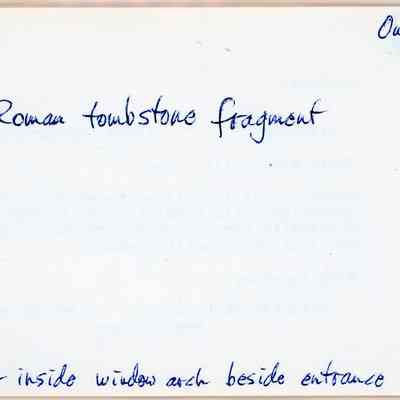 Roman tombstone fragment
inside window arch beside entrance